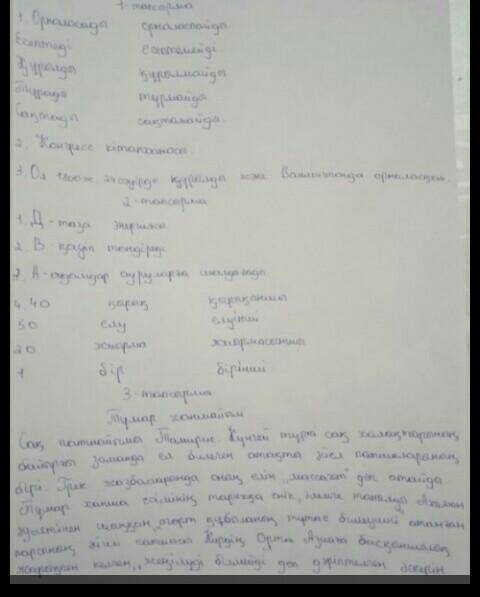 1-тапсырма
1. Орналасада орналаспайды
Есептеді есептемейді
Құралда құралмайды
Тұрада тұрмайды
Сақтада сақтамайды.
2. Конгресс кітапханасы.
3. Ол 1800ж 24 сәуірде құралды және Вашингтонда орналасқан.
2-тапсырма
1. Д-таза энергия
2. В-қауіп төндіреді
3. А-адамдар ауруларға шалдығады
4. 40 қырық қырқыншы
50 елу елуінші
20 жиырма жиырмасыншы
1 бір бірінші
3-тапсырма
Тұмар ханшайым
Сақ патшайымы Томирис. Күнгей тұрта сақ халықтарының
байырғы заманда ел билеген атақты әйел патшаларының
бірі. Грек жазбаларында оның елін ,,массагет" деп атайды.
Тұмар ханша есімінің тарихқа еніп, әлемге танылуы Ахемен
әулетінен шыққан, төрт құбыланың түгелге билеушісі атанған
парсының әйгілі патшасы Кирдің Орта Азияға басқыншылық
жорықпен келген, ,,жеңілуді білмейді деп дәріптелген әскерін